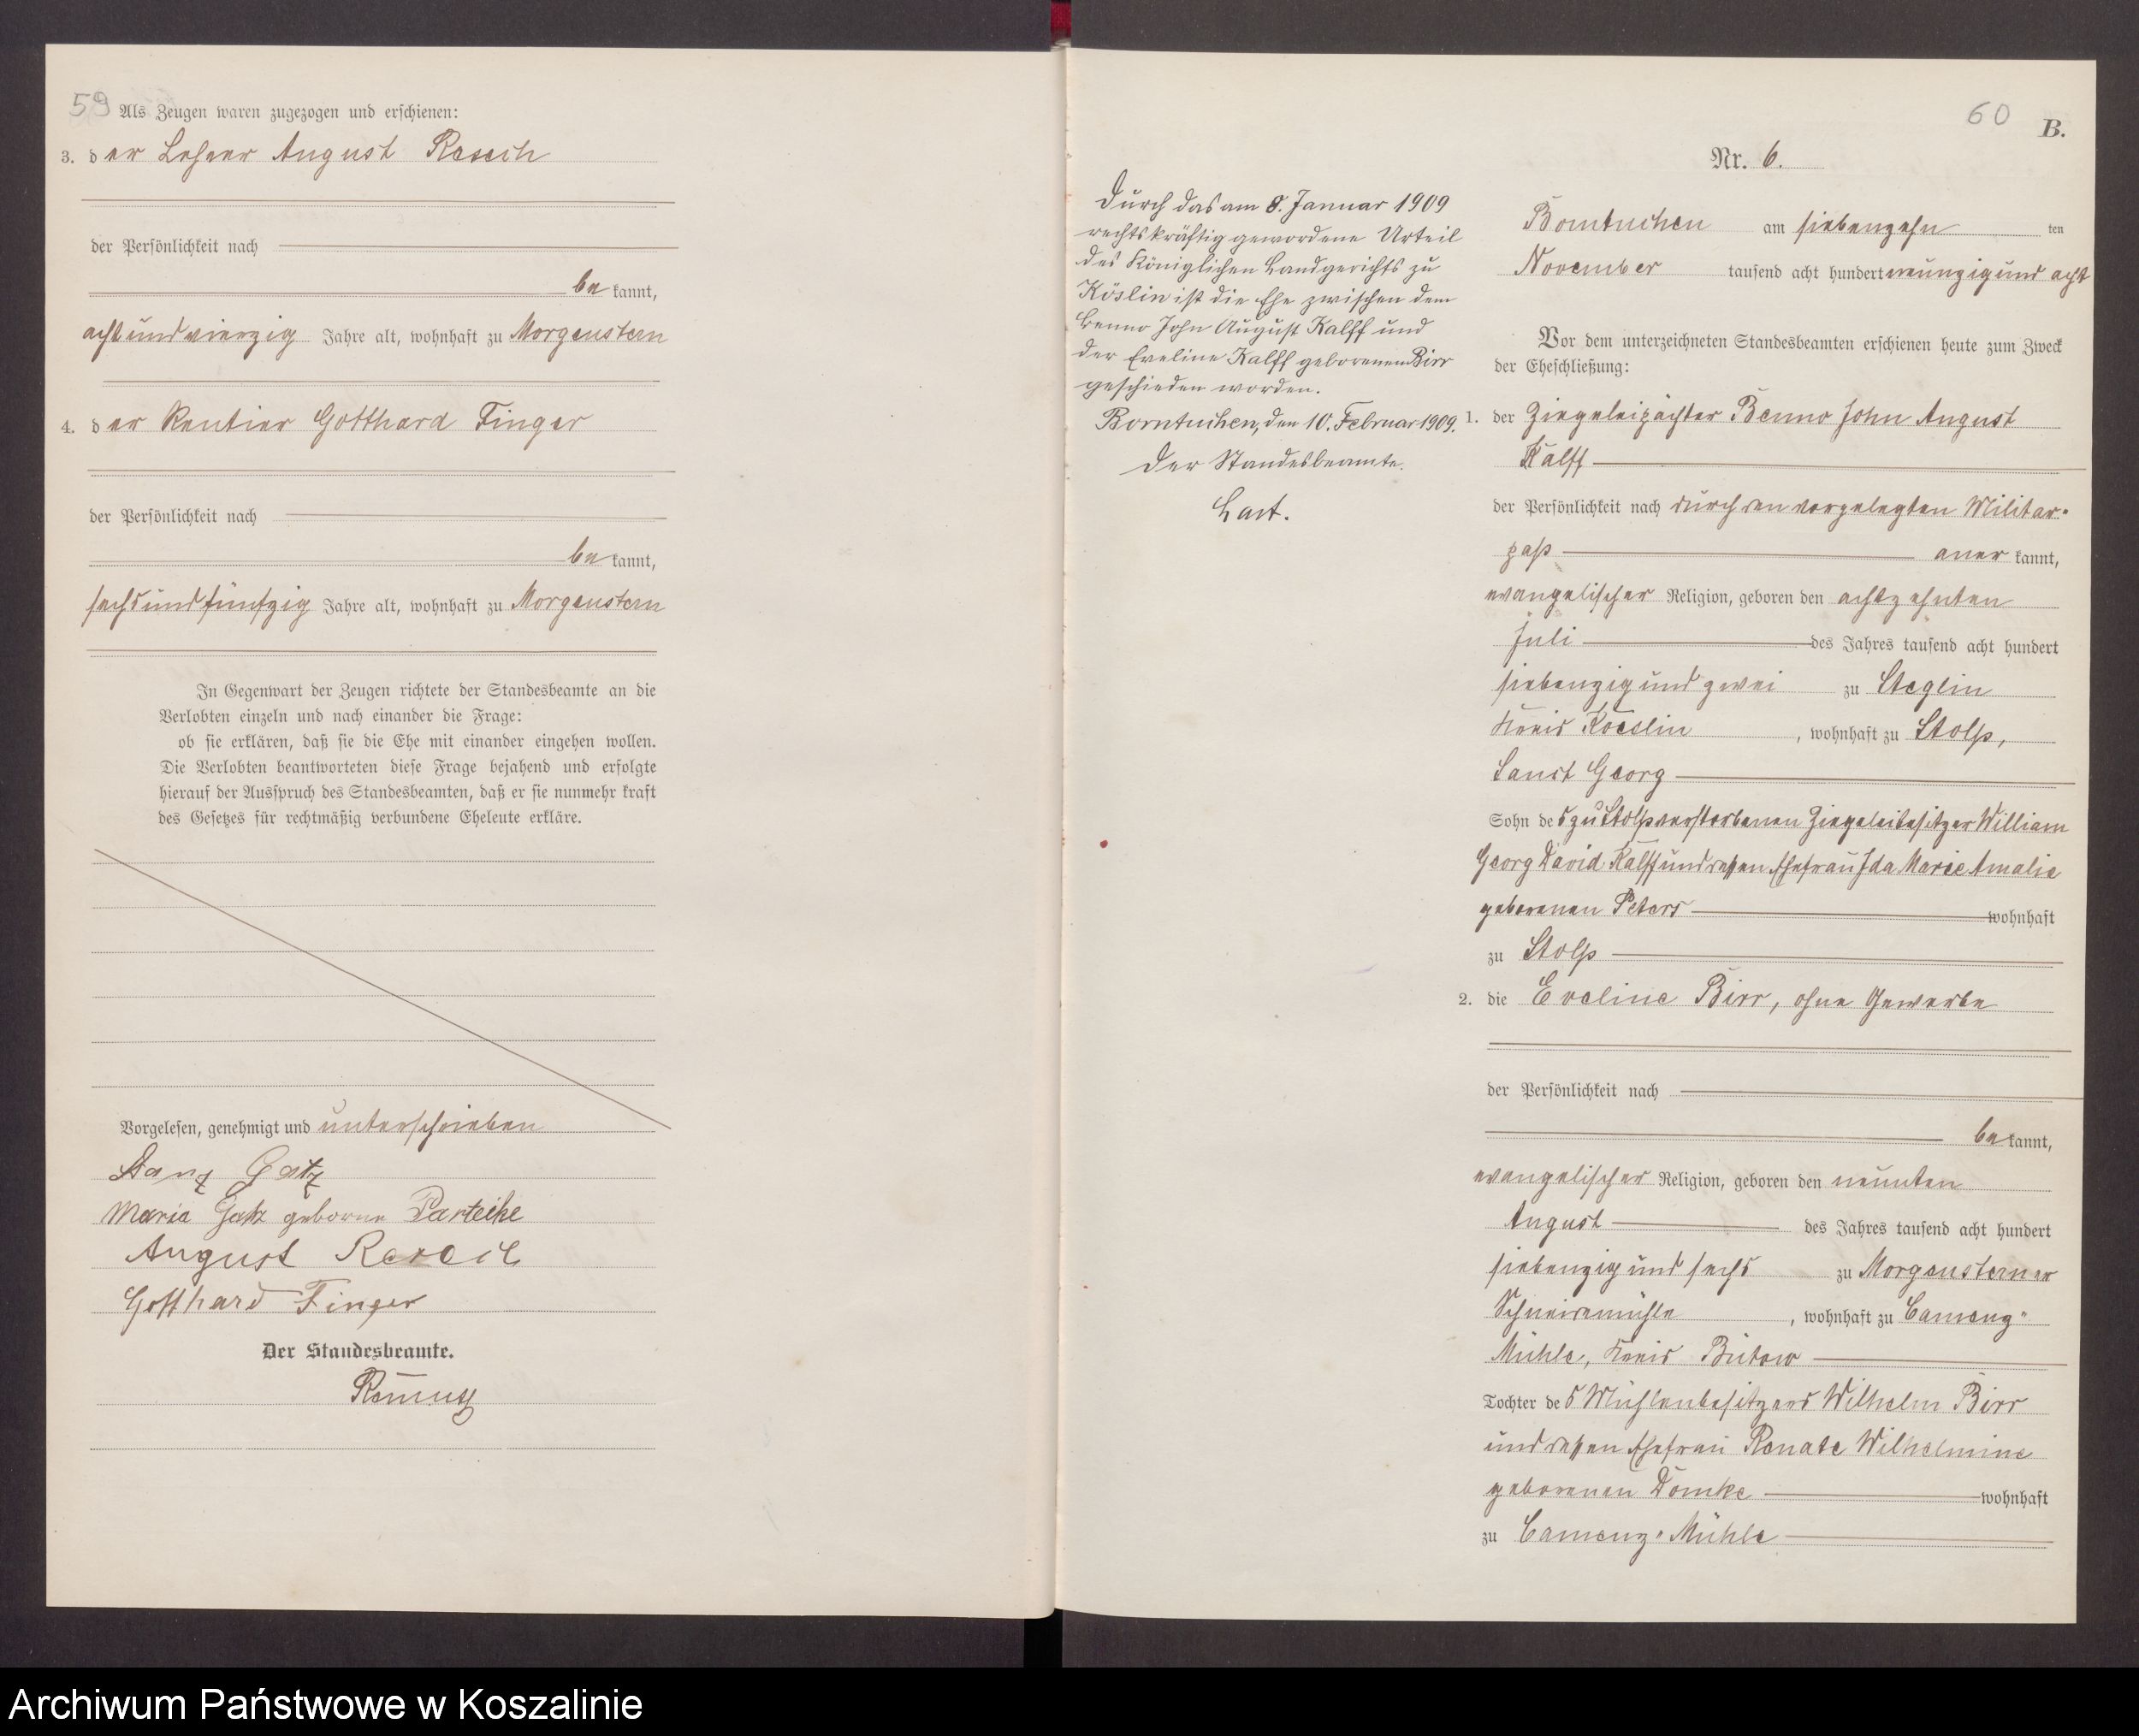 59
Als Zeugen waren zugezogen und erschienen:
3. der Lehrer August
der Persönlichkeit nach
be kannt,
achtundvierzig Jahre alt, wohnhaft zu Morgenstern
4. der Rentier Gotthard Finger
der Persönlichkeit nach
be kannt,
sechsundfünfzig Jahre alt, wohnhaft zu Morgenstern
In Gegenwart der Zeugen richtete der Standesbeamte an die
Verlobten einzeln und nach einander die Frage:
ob sie erklären, daß sie die Ehe mit einander eingehen wollen.
Die Verlobten beantworteten diese Frage bejahend und erfolgte
hierauf der Ausspruch des Standesbeamten, daß er sie nunmehr kraft
des Gesetzes für rechtmäßig verbundene Eheleute erkläre.
Vorgelesen, genehmigt und unterschrieben
Gatz
Maria Gatz geborne
August
Gotthard Finger
Der Standesbeamte.
60
B.
Nr. 6.
Durch das am 8. Januar 1909
rechtskräftig gewordene Urteil
des Königlichen Landgerichts zu
Köslin ist die Ehe zwischen dem
Benno John August Kalff und
der Eveline Kalff geborenen Birr
geschieden worden.
Borntuchen, den 10. Februar 1909.
Der Standesbeamte.
Borntuchen am siebenzehn ten
November tausend acht hundert neunzig und acht
Vor dem unterzeichneten Standesbeamten erschienen heute zum Zweck
der Eheschließung:
1. der Ziegeleipächter Benno John August
Kalff
der Persönlichkeit nach durch den vorgelegten Militär-
paß aner kannt,
evangelischer Religion, geboren den achtzehnten
Juli des Jahres tausend acht hundert
siebenzig und zwei zu Steglin
Kreis Koeslin, wohnhaft zu Stolp,
Sanct Georg
Sohn des zu Stolp verstorbenen Ziegeleibesitzer William
Georg David Kalff und dessen Ehefrau Ida Marie Amalie
geborenen Peters wohnhaft
zu Stolp
2. die Eveline Birr, ohne Gewerbe
der Persönlichkeit nach
be kannt,
evangelischer Religion, geboren den neunten
August des Jahres tausend acht hundert
siebenzig und sechs zu Morgensterner
Schneidemühle, wohnhaft zu Camenz-
Mühle, Kreis Bütow
Tochter des Mühlenbesitzers Wilhelm Birr
und dessen Ehefrau Renate Wilhelmine
geborenen Domke wohnhaft
zu Camenz-Mühle
Archiwum Państwowe w Koszalinie